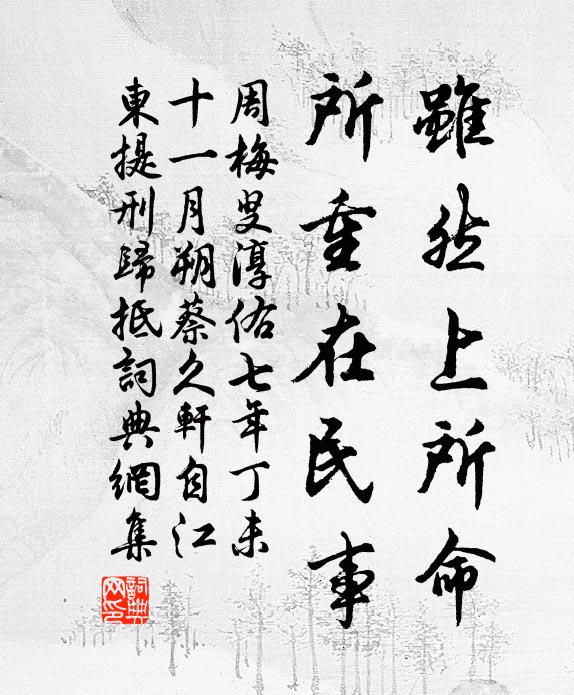 雖然上所命
所重在民事
周梅叟淳佑七年丁未
十一月朔蔡久軒自江
東提刑歸抵詞典網集
詞典网印